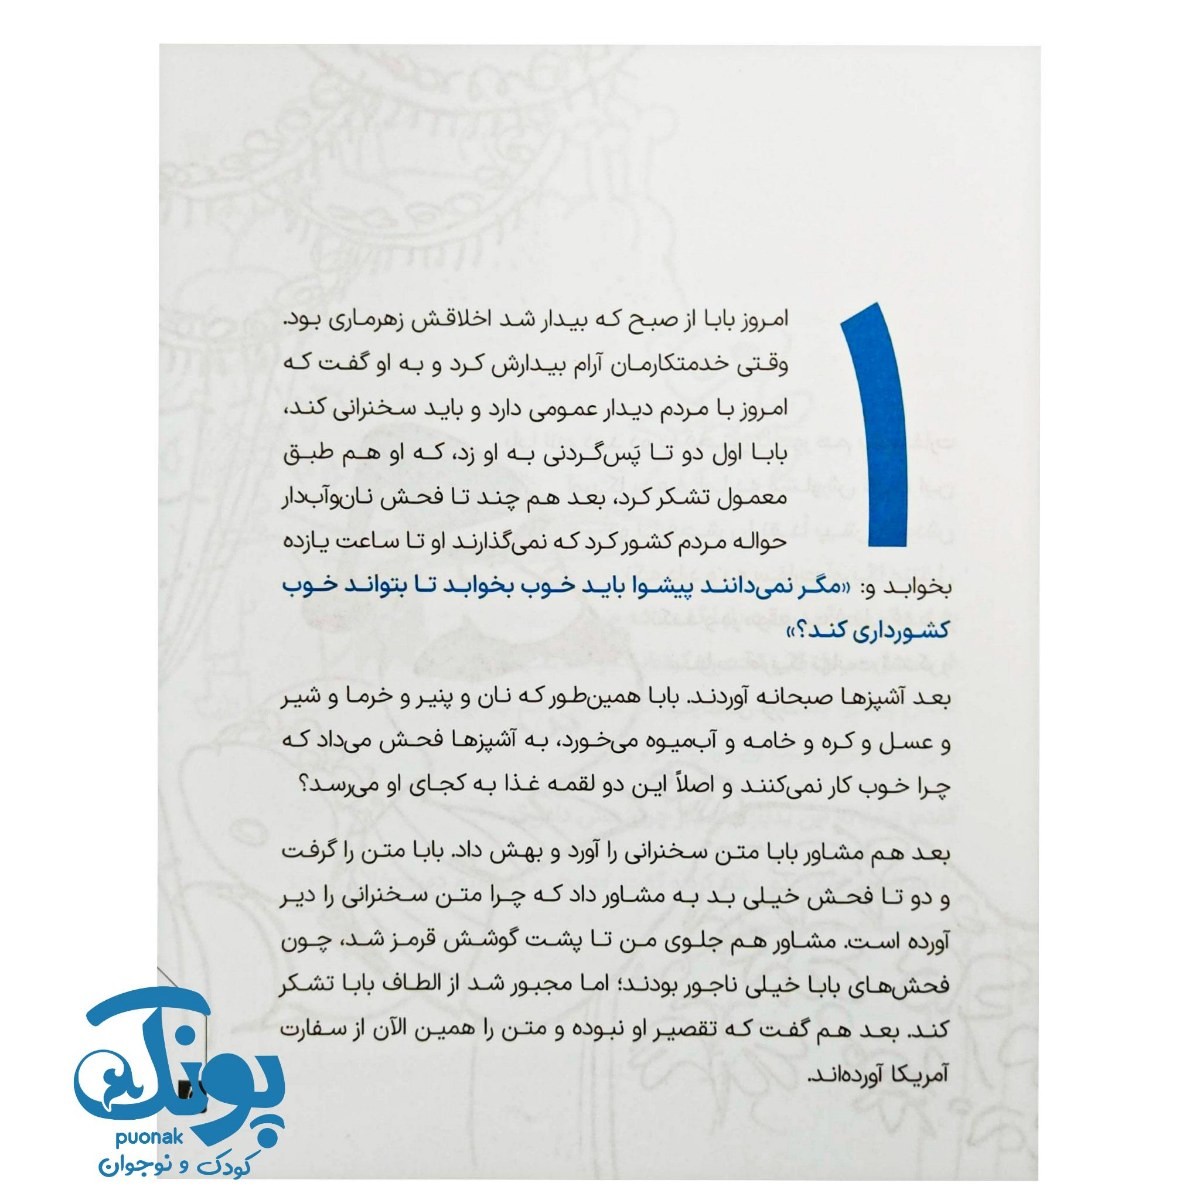 ۱
امروز بابا از صبح که بیدار شد اخلاقش زهرماری بود.
وقتی خدمتکارمان آرام بیدارش کرد و به او گفت که
امروز با مردم دیدار عمومی دارد و باید سخنرانی کند،
بابا اول دو تا پَس‌گردنی به او زد، که او هم طبق
معمول تشکر کرد، بعد هم چند تا فحش نان‌وآب‌دار
حواله مردم کشور کرد که نمی‌گذارند او تا ساعت یازده
بخوابد و: «مگر نمی‌دانند پیشوا باید خوب بخوابد تا بتواند خوب
کشورداری کند؟»
بعد آشپزها صبحانه آوردند. بابا همین‌طور که نان و پنیر و خرما و شیر
و عسل و کره و خامه و آب‌میوه می‌خورد، به آشپزها فحش می‌داد که
چرا خوب کار نمی‌کنند و اصلاً این دو لقمه غذا به کجای او می‌رسد؟
بعد هم مشاور بابا متن سخنرانی را آورد و بهش داد. بابا متن را گرفت
و دو تا فحش خیلی بد به مشاور داد که چرا متن سخنرانی را دیر
آورده است. مشاور هم جلوی من تا پشت گوشش قرمز شد، چون
فحش‌های بابا خیلی ناجور بودند؛ اما مجبور شد از الطاف بابا تشکر
کند. بعد هم گفت که تقصیر او نبوده و متن را همین الآن از سفارت
آمریکا آورده‌اند.
پونک
puonak
کودک و نوجوان